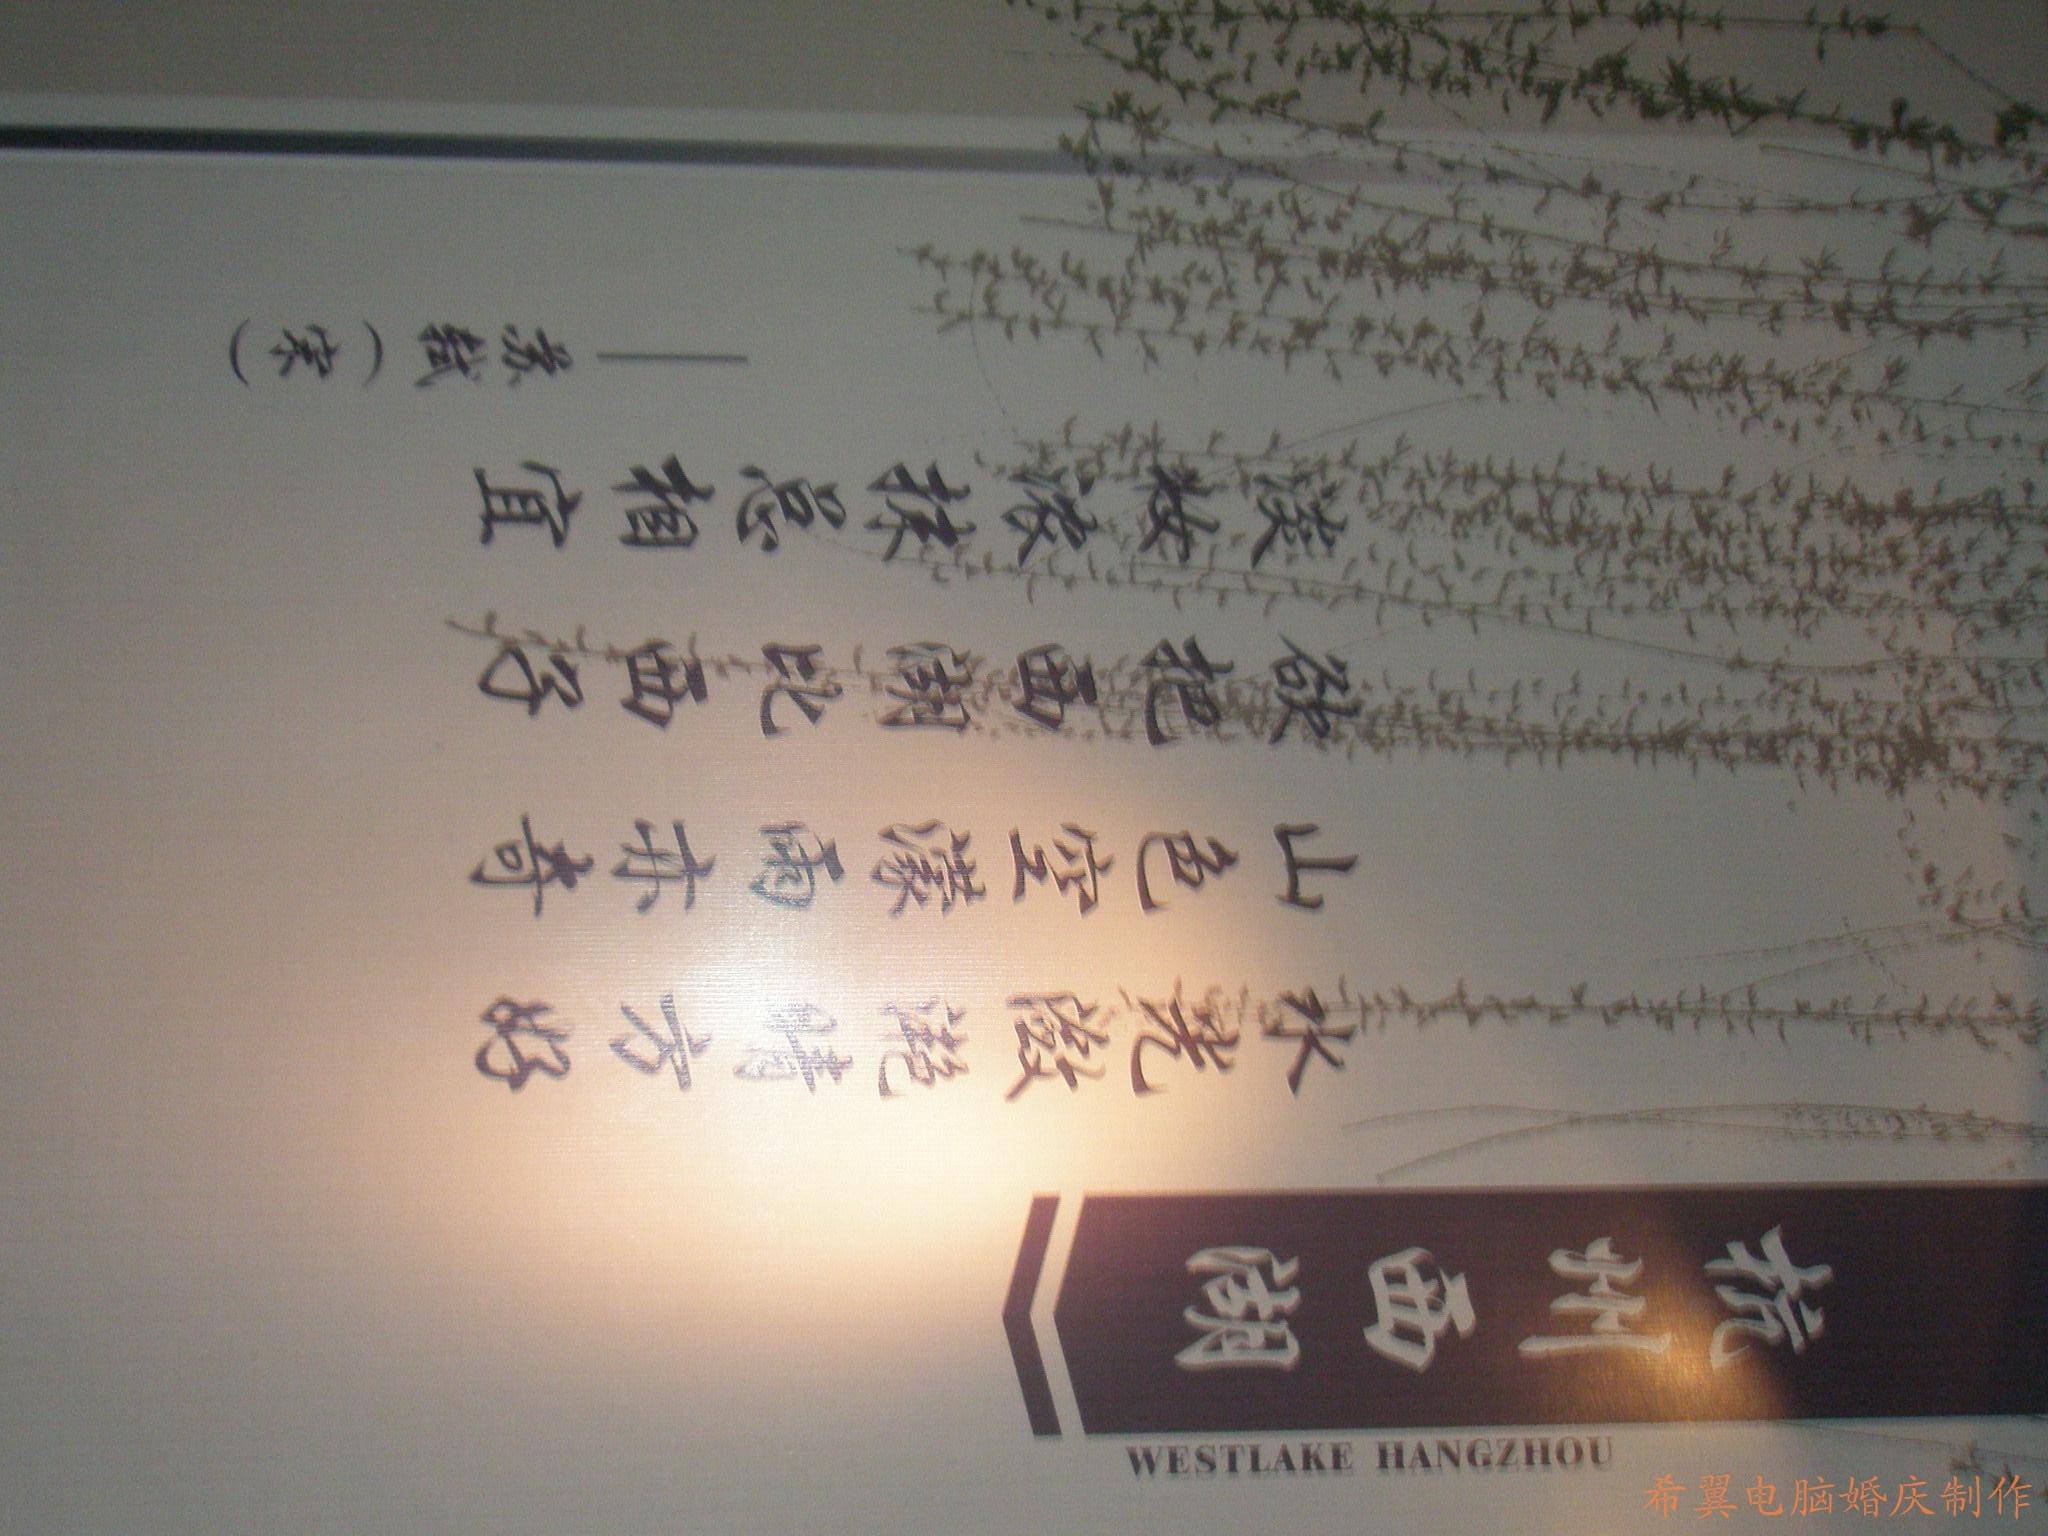 杭州西湖
WESTLAKE HANGZHOU
水光潋滟晴方好
山色空濛雨亦奇
欲把西湖比西子
淡妆浓抹总相宜
——苏轼（宋）
希翼电脑婚庆制作